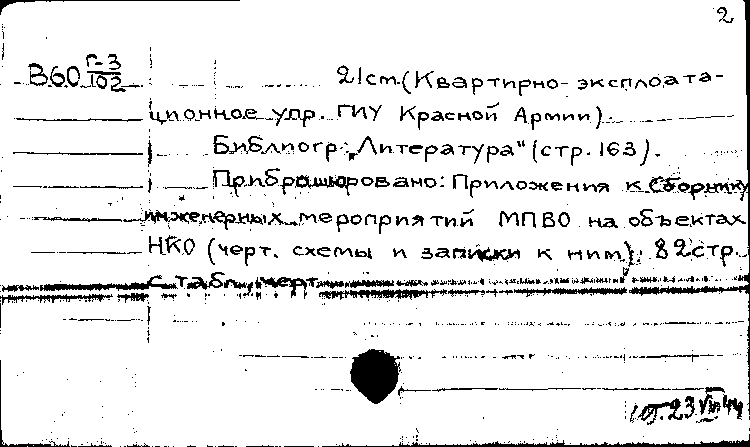 2
В60 Г-3/102
21cm. (Квартирно-эксплоата-
ционное упр. ГИУ Красной Армии).
Библиогр: „Литература" (стр. 163).
Приброшюровано: Приложения к Сборнику
инженерных мероприятий МПВО на объектах
НКО (черт. схемы и записки к ним). 82стр.
с табл., черт.
23 VIII 44